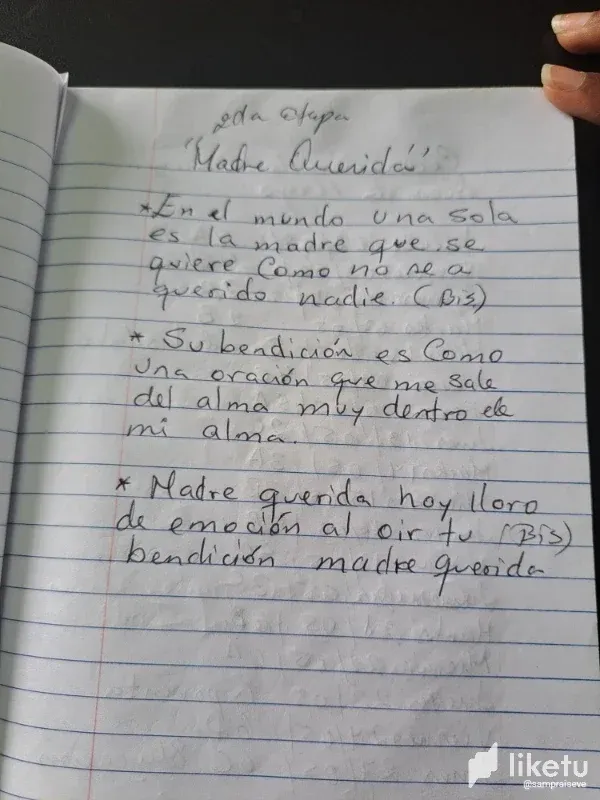 2da etapa
"Madre Querida"
*En el mundo una sola
es la madre que se
quiere Como no se a
querido nadie. (Bis)
* Su bendición es Como
una oración que me sale
del alma muy dentro de
mi alma.
* Madre querida hoy lloro
de emoción al oir tu (Bis)
bendición madre querida
liketu
@sampraiseve